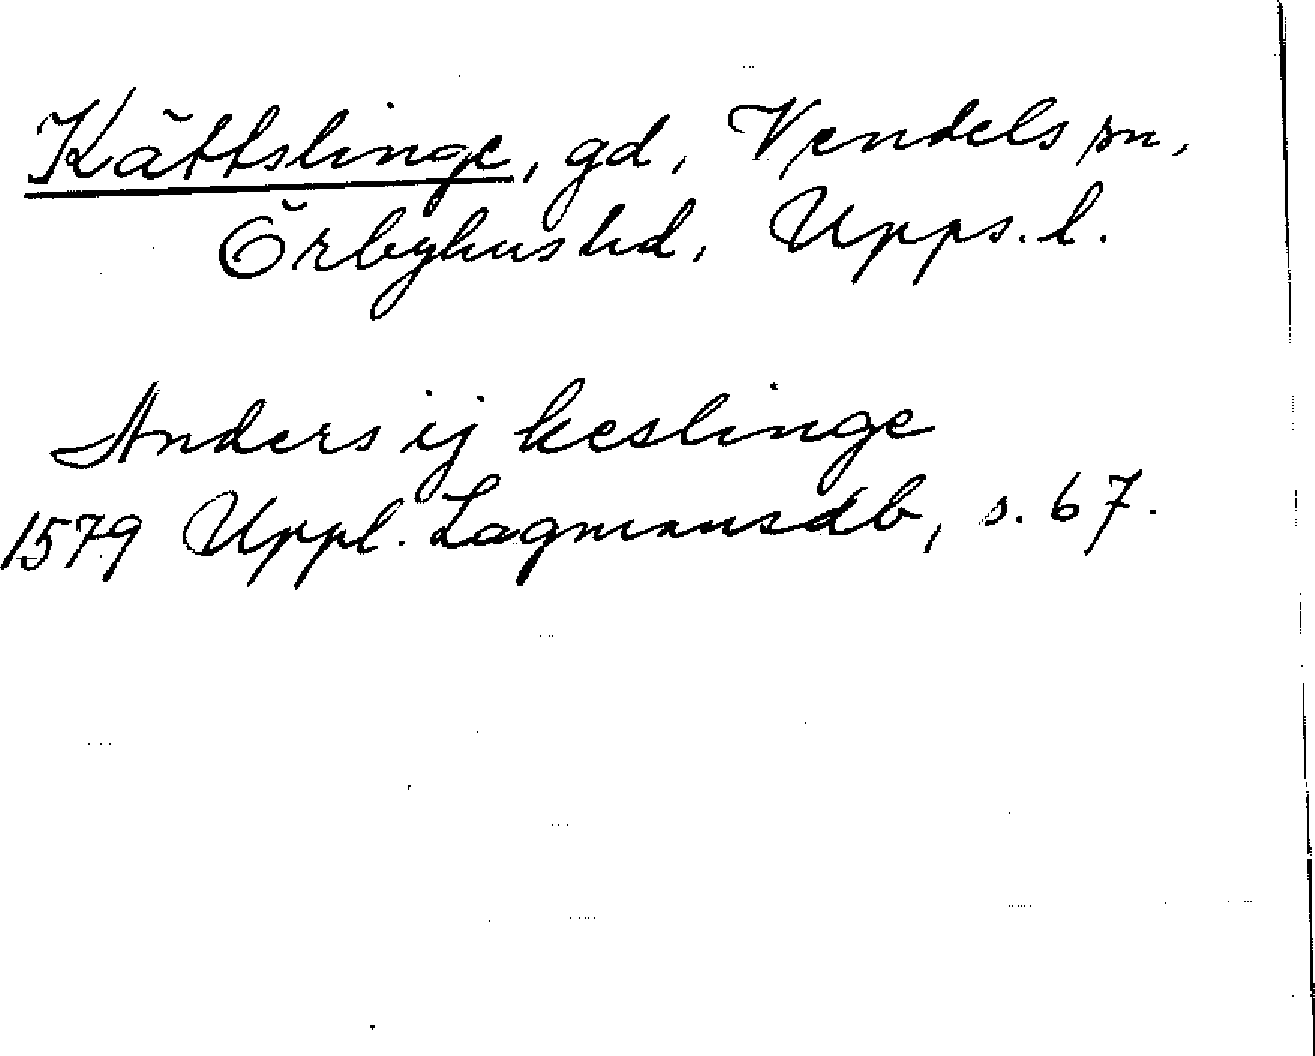 Kättslinge, gd, Vendels sn,
Örbyhus hd, Upps. l.
Anders ij keslinge
1579 Uppl. Lagmansdb, s. 67.